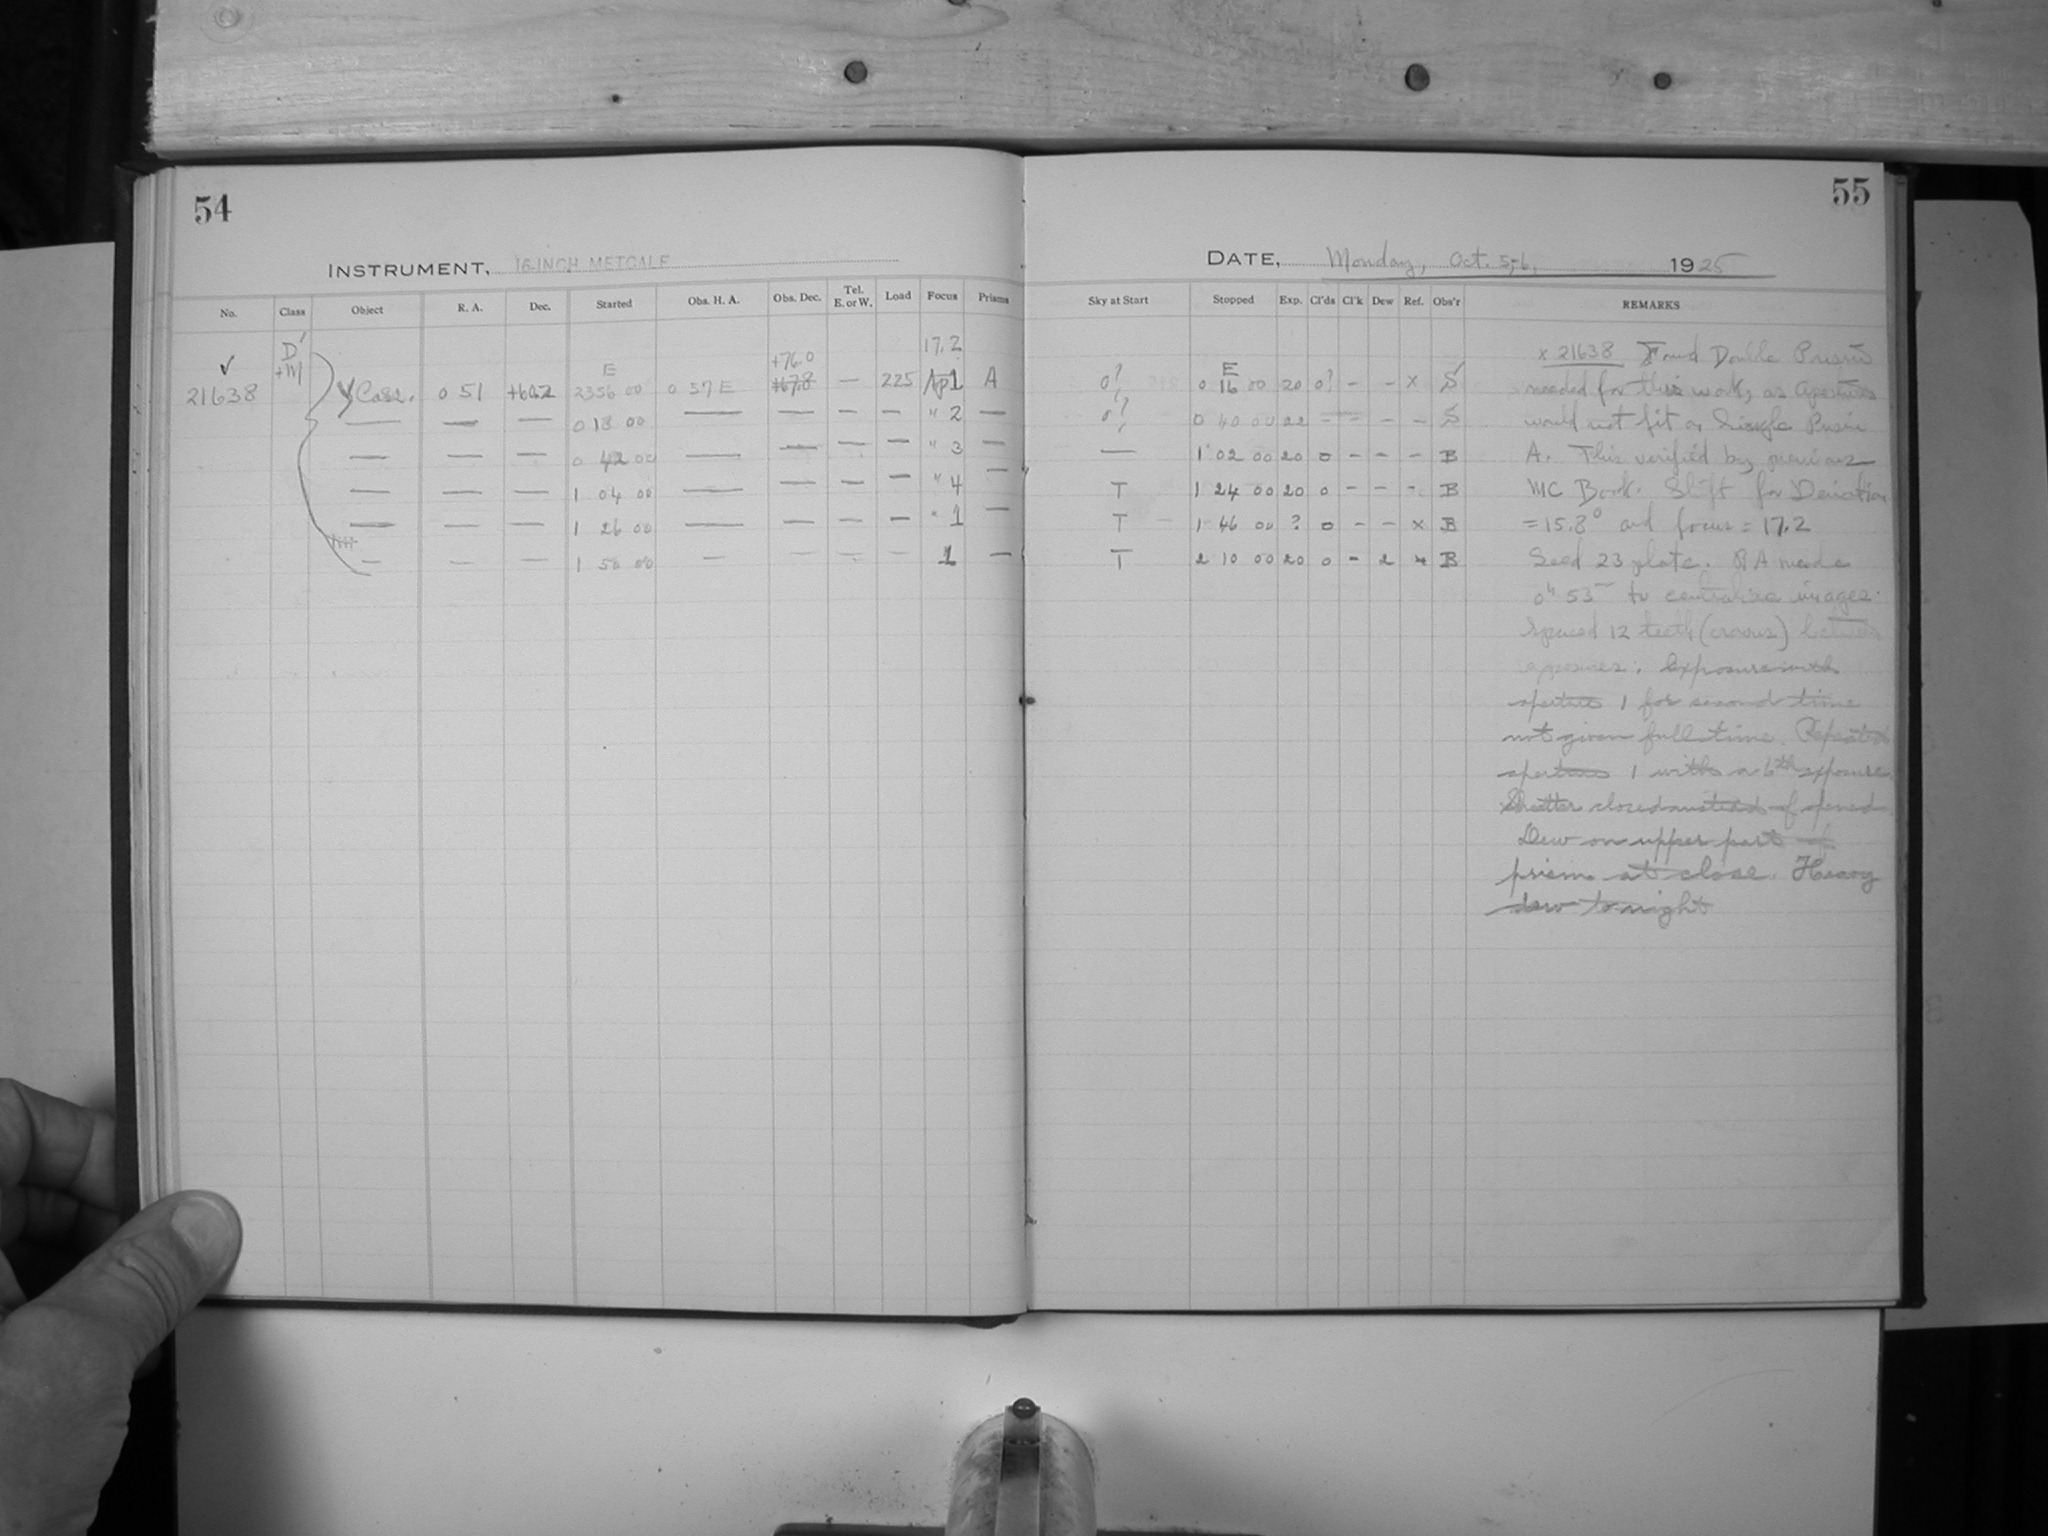 54
INSTRUMENT, 16-INCH METCALF
No. Class Object R. A. Dec. Started Obs. H. A. Obs. Dec. Tel. E. or W. Load Focus Prisms
D'
+M
17.2
✓ E +76.0
21638 γ Cass. 0 51 +60.2 23 56 00 0 57 E +67.8 — 225 Ap 1 A
— — — 0 18 00 — — — — " 2 —
— — — 0 42 00 — — — — " 3 —
— — — 1 04 00 — — — — " 4 —
— — — 1 26 00 — — — — " 1 —
— — — 1 50 00 — — — — 1 —
55
DATE, Monday, Oct. 5-6, 1925
Sky at Start Stopped Exp. Cl'ds Cl'k Dew Ref. Obs'r REMARKS
E
0? 0 16 00 20 0? - - x S
0? 0 40 00 22 - - - - S
— 1 02 00 20 0 - - - B
T 1 24 00 20 0 - - - B
T 1 46 00 ? 0 - - x B
T 2 10 00 20 0 - 2 B
x 21638 Found Double Prism
needed for this work, as apertures
would not fit on Single Prism
A. This verified by previous
MC Book. Shift for Deviation
= 15.8° and focus = 17.2
Seed 23 plate. RA made
0h 53m to centralize images.
Spaced 12 teeth (crosses) between
exposures. Exposure with
aperture 1 for second time
not given full time. Repeated
aperture 1 with a 6th exposure
Shutter closed instead of opened
Dew on upper part of
prism at close. Heavy
dew tonight